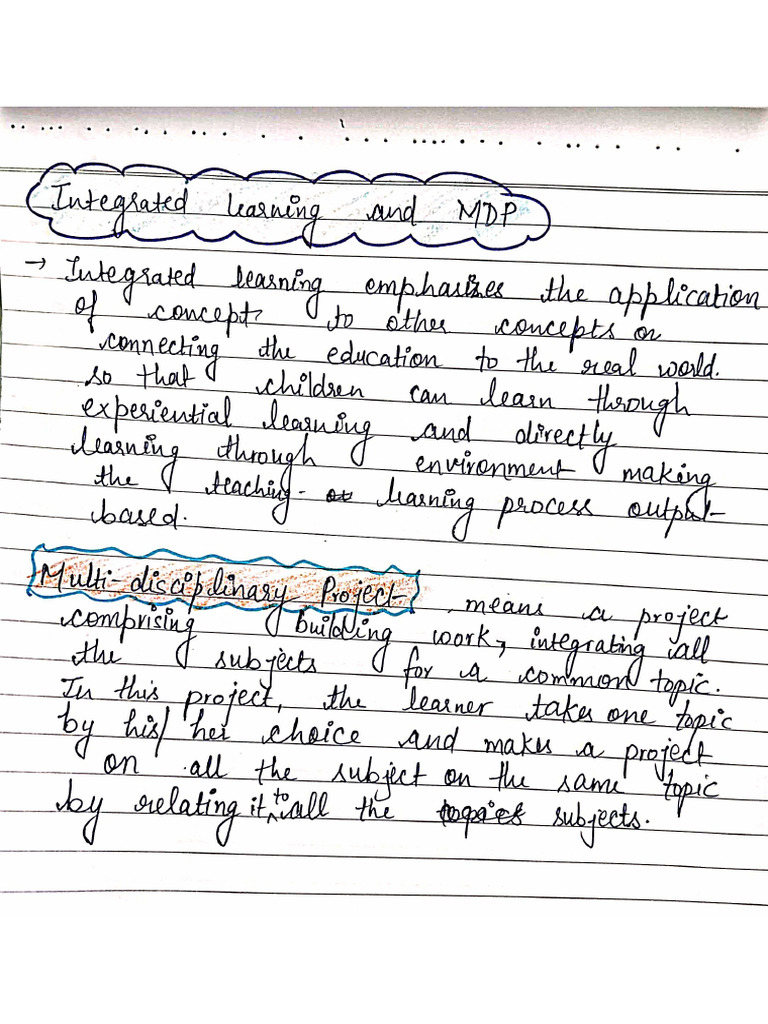 Integrated learning and MDP
→ Integrated learning emphasizes the application
of concept to other concepts or
connecting the education to the real world.
so that children can learn through
experiential learning and directly
learning through environment making
the teaching- learning process output-
based.
Multi-disciplinary Project means a project
comprising building work, integrating all
the subjects for a common topic.
In this project, the learner takes one topic
by his/ her choice and makes a project
on all the subject on the same topic
by relating it to all the subjects.